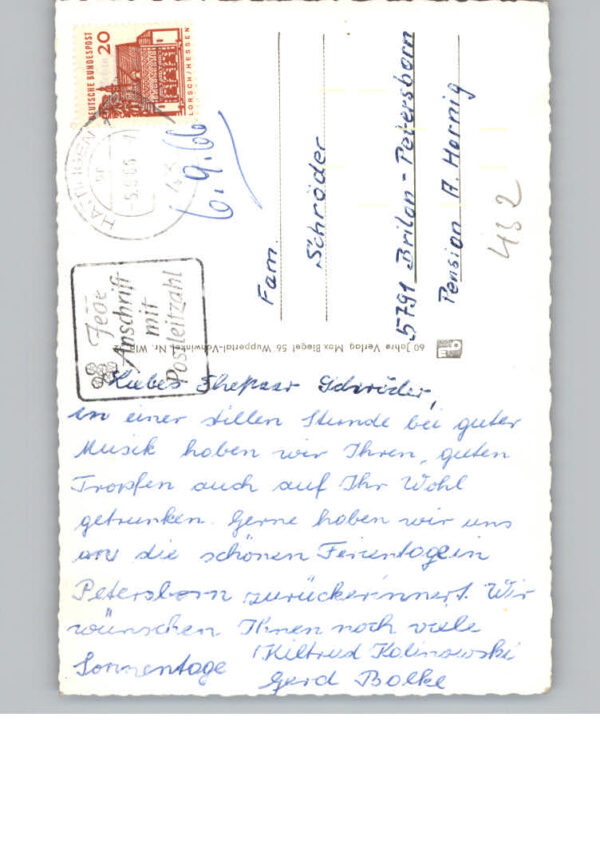 DEUTSCHE BUNDESPOST
20
LORSCH/HESSEN
HATTINGEN
-5.9.66
6.9.66
Jede
Anschrift
mit
Postleitzahl
Fam.
Schröder
5791 Brilon-Petersborn
Pension A. Hornig
432
60 Jahre Verlag Max Biegel 56 Wuppertal-Vohwinkel, Nr.
Liebes Ehepaar Schröder,
in einer stillen Stunde bei guter
Musik haben wir Ihren „guten
Tropfen auch auf Ihr Wohl
getrunken. Gerne haben wir uns
an die schönen Ferientage in
Petersborn zurückerinnert. Wir
wünschen Ihnen noch viele
Sonnentage
Hiltrud Kalinowski
Gerd Bolke